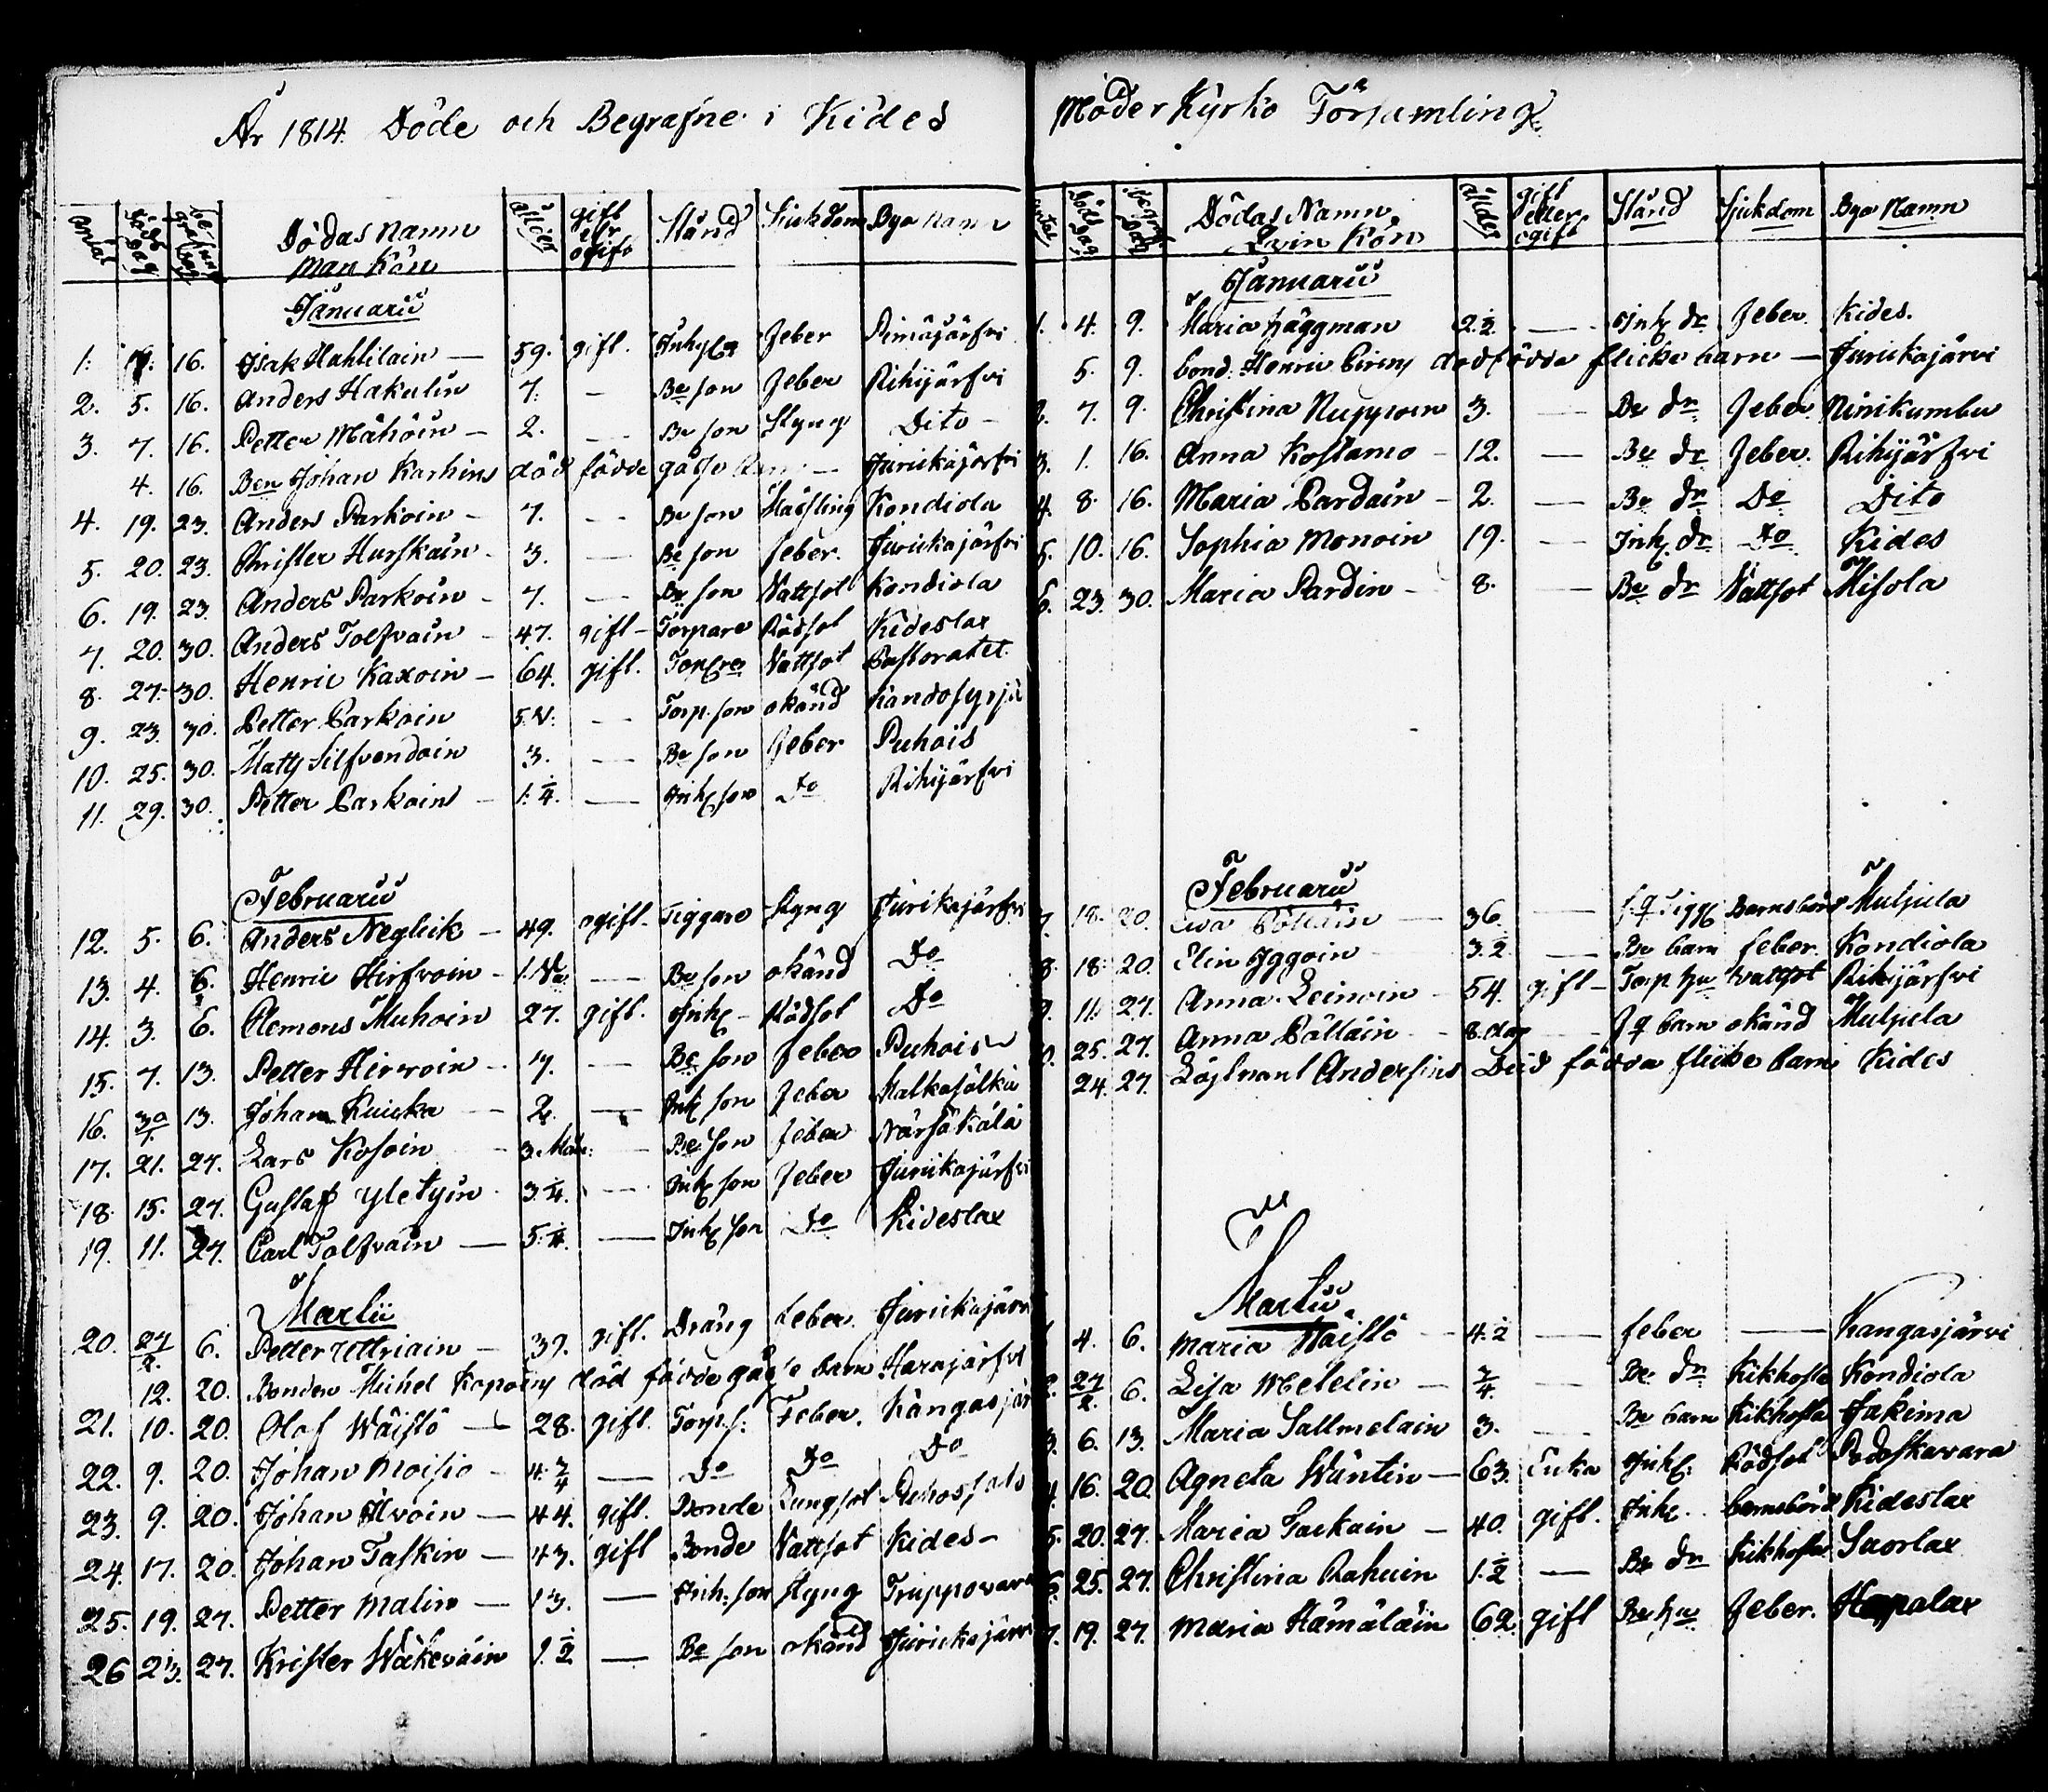 År 1814. Döde och Begrafne i Kides
antal Döds Dag Begrafnings dag Dödas Namn Man Kön ålder gift elr ogift Stånd Siukdom Bya Namn
Januarii
1. 16. Isak Hahlilain — 59. gift. Inhys Feber
2. 5. 16. Anders Hakulin 7. — Be son Feber Rihijärfvi
3. 7. 16. Petter Mähöin — 2. — Be son Styng Dito —
4. 16. Ben Johan Karhins död födde — Jurickajärfvi
4. 19. 23. Anders Parkoin — 7. — Be son Kondiola
5. 20. 23. Christer Hurskain — 3. — Be son feber. Jurickajärfvi
6. 19. 23. Anders Parkoin — 7. — Be son Vattsot Kondiola
7. 20. 30. Anders Tolfvain — 47. gift — Torpare Rödsot Kideslax
8. 27. 30. Henric Kaxoin — 64. gift. Vattsot Pastoratet
9. 23. 30. Petter Parkoin — Torp. son okänd
10. 25. 30. Matts Silfvendoin 3. — Be son Feber Puhois
11. 29. 30. Petter Parkoin — 1.¼. — Inh. son Do Rihijärfvi
Februarii
12. 5. 6. Anders Neglick — 49. ogift. Tiggare Styng Jurikajärfvi
13. 4. 6. Henric Hirfvoin — — Be son okänd Do
14. 3. 6. Clemens Muhoin 27. gift. Inh. — Rödsot Do
15. 7. 13. Petter Hirvoin — 7. — Be son Feber Puhois
16. 30/1. 13. Johan Kuicka — 2. — Inh son Feber Malkasälkä
17. 21. 27. Lars Kosoin — 3. Mån: — Be son feber Närsäkälä
18. 15. 27. Gustaf Yletyin 3.¼. — Inh son Feber Jurickajärfvi
19. 11. 27. Carl Tolfvain — — Inh son Do Kideslax
Martii
20. 27/2. 6. Petter Uttriain — 39. gift. Dräng feber. Jurickajärvi
12. 20. Bonden Michel Kopoins död födde gåsse barn Harajärfvi
21. 10. 20. Olof Wäistö — 28. gift. Torp. s: Feber. Kangasjär
22. 9. 20. Johan Moisio — 4.¾ — Do Do Do
23. 9. 20. Johan Ilvoin — 44. gift. Bonde Lungsot
24. 17. 20. Johan Taskin — 43. gift Bonde Vattsot Kides —
25. 19. 27. Petter Malin — 13. — Inh. son Styng Truppovara
26 23. 27. Krister Wäkeväin 1.½ — Be son okänd Jurickajärvi
Moder Kyrko Församling
antal Döds Dag Begrafn Dag Dödas Namn Qvin Kön ålder gift eller ogift Stånd Sjukdom Bya Namn
Januarii
1. 4. 9. Maria Häggman 2.½ — Inh dr Feber. Kides.
5. 9. bond. Henric Pirins dödfödda flicke barn — Jurickajärvi
2. 7. 9. Christina Nuppoin 3. — Be dr Feber. Ninikumbu
3. 1. 16. Anna Kostamo — 12. — Be dr Feber. Rihijärfvi
4. 8. 16. Maria Pardain — 2. — Be dr Do Dito
5. 10. 16. Sophia Monoin 19. — Inh dr Do Kides
6. 23. 30. Maria Pardin — 8. — Be dr Vattsot Misola
Februarii
7. 18. 20. Eva Pöllain — 36. — Barnsbörd Muljula
8. 18. 20. Elin Iggoin — 3.½ — Be barn feber. Kondiola
9. 11. 27. Anna Leinoin — 54. gift — Torp hu vattsot Rihijärfvi
10. 25. 27. Anna Pöllain — 8. dag — barn okänd Muljula
24. 27. Löjtnant Andersins Död födda flicke barn Kides
Martii
1. 4. 6. Maria Wäistö — 4.½ — feber — Kangasjärvi
2. 27/2. 6. Lisa Metelin — ¾ — Be dr Kikhosta Kondiola
3. 6. 13. Maria Sallmelain 3. — Be barn Kikhosta Jakima
4. 16. 20. Agneta Wäntin — 63. Enka Inh. Rödsot Podoskavara
5. 20. 27. Maria Taskain — 40. gift. Inh. barnsbörd Kideslax
6. 25. 27. Christina Rahuin 1.½ — Be dr Kikhosta Suorlax
7. 19. 27. Maria Hämäläin 62. gift Be hu Feber. Hapalax